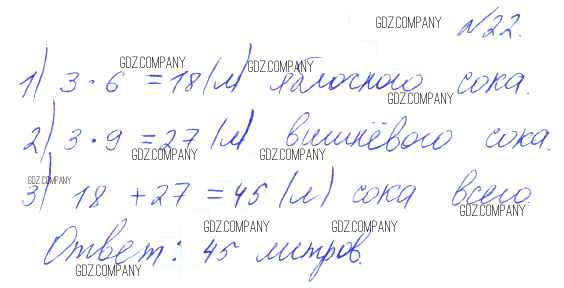 №22.
1) 3 · 6 = 18 (л) яблочного сока.
2) 3 · 9 = 27 (л) вишнёвого сока.
3) 18 + 27 = 45 (л) сока всего.
Ответ: 45 литров.
GDZ.COMPANY
GDZ.COMPANY
GDZ.COMPANY
GDZ.COMPANY
GDZ.COMPANY
GDZ.COMPANY
GDZ.COMPANY
GDZ.COMPANY
GDZ.COMPANY
GDZ.COMPANY
GDZ.COMPANY